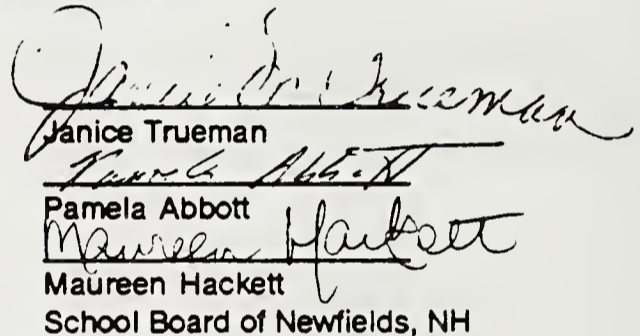 Janice M. Trueman
Janice Trueman
Pamela Abbott
Pamela Abbott
Maureen Hackett
Maureen Hackett
School Board of Newfields, NH